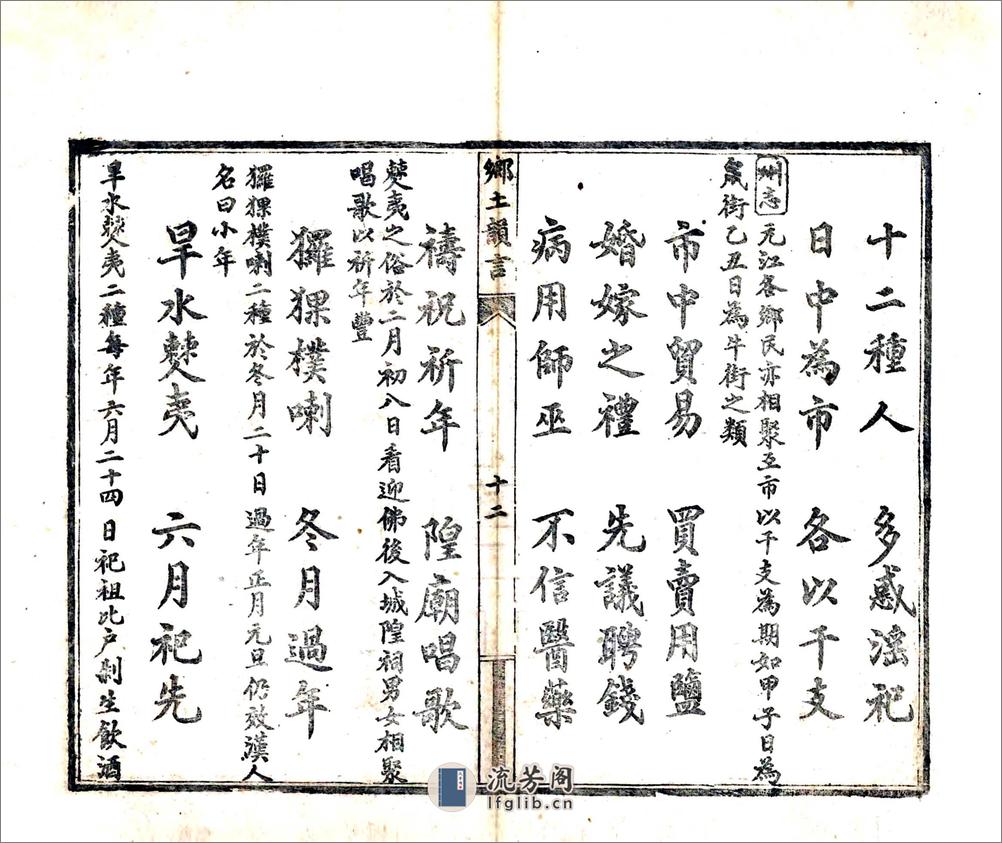 十二種人　多惑滛祀
日中為市　各以干支
州志　元江各鄉民亦相聚互市以干支為期如甲子日為
鼠街乙丑日為牛街之類
市中貿易　買賣用鹽
婚嫁之禮　先議聘錢
病用師巫　不信醫藥
鄉土韻言　十二
禱祝祈年　隍廟唱歌
僰夷之俗於二月初八日看迎佛後入城隍祠男女相聚
唱歌以祈年豐
玀猓樸喇　冬月過年
玀猓樸喇二種於冬月二十日過年正月元旦仍效漢人
名曰小年
旱水僰夷　六月祀先
旱水僰夷二種每年六月二十四日祀祖比户剁生飲酒
流芳阁
lfglib.cn